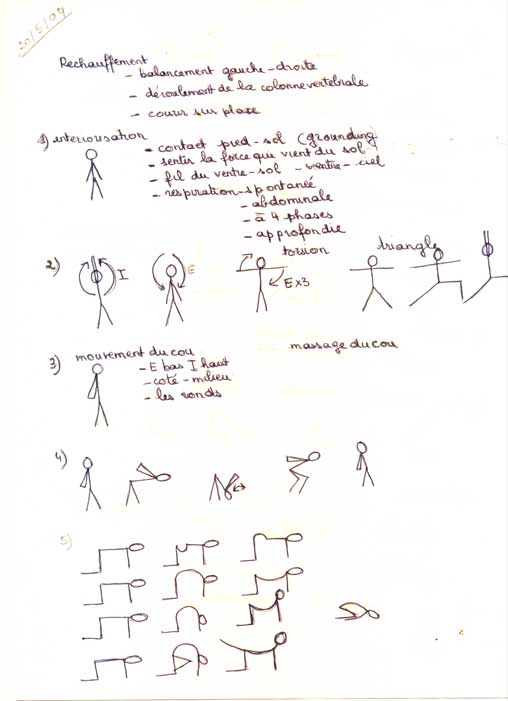 20/5/09
Rechauffement
- balancement gauche-droite
- déroulement de la colonne vertebrale
- courir sur place
1) interiorisation
- contact pied-sol (grounding)
- sentir la force qui vient du sol
- fil du ventre-sol - ventre-ciel
- respiration-spontanée
- abdominale
- à 4 phases
- approfondie
2) I E torsion triangle
E x3
3) mouvement du cou massage du cou
- E bas I haut
- coté-milieu
- les ronds
4)
5)